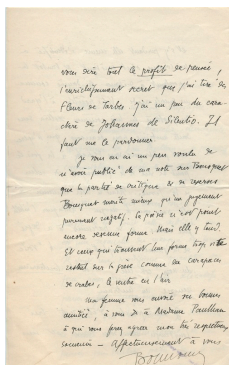 vous dire tout le profit de pensée,
l'enrichissement secret que j'ai tiré des
Fleurs de Tarbes. J'ai un peu du cara-
ctère de Johannes de Silentio. Il
faut me le pardonner.
Je vous ai un peu voulu de
n'avoir publié de ma note sur Bousquet
que la partie de critique et de réserves
Bousquet mérite mieux qu'un jugement
purement négatif. Le poète n'est point
encore sa forme mais elle y tend.
Et ceux qui trouvent leur forme trop vite
restent sur la grève comme les carapaces
de crabes, le ventre en l'air.
Ma femme vous envoie ses bonnes
amitiés, à vous et à Madame Paulhan
à qui vous ferez agréer mon très respectueux
souvenir — Affectueusement à vous